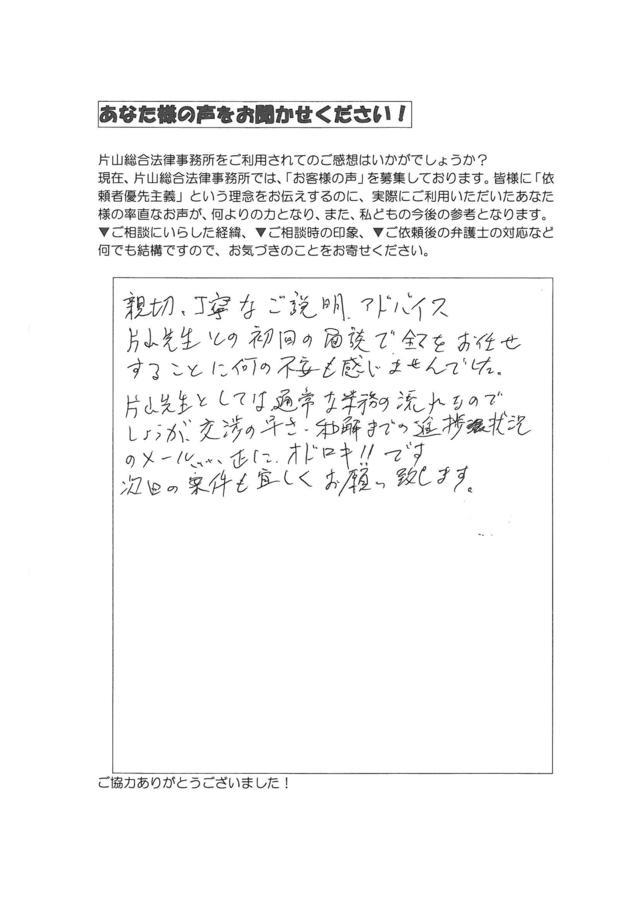 あなた様の声をお聞かせください！
片山総合法律事務所をご利用されてのご感想はいかがでしょうか？
現在、片山総合法律事務所では、「お客様の声」を募集しております。皆様に「依
頼者優先主義」という理念をお伝えするのに、実際にご利用いただいたあなた
様の率直なお声が、何よりの力となり、また、私どもの今後の参考となります。
▼ご相談にいらした経緯、▼ご相談時の印象、▼ご依頼後の弁護士の対応など
何でも結構ですので、お気づきのことをお寄せください。
親切、丁寧なご説明、アドバイス
片山先生との初回の面談で全てをお任せ
することに何の不安も感じませんでした。
片山先生としては通常な業務の流れなので
しょうが、交渉の早さ・和解までの進捗状況
のメール、、、、正に、オドロキ!!です
次回の案件も宜しくお願い致します。
ご協力ありがとうございました！